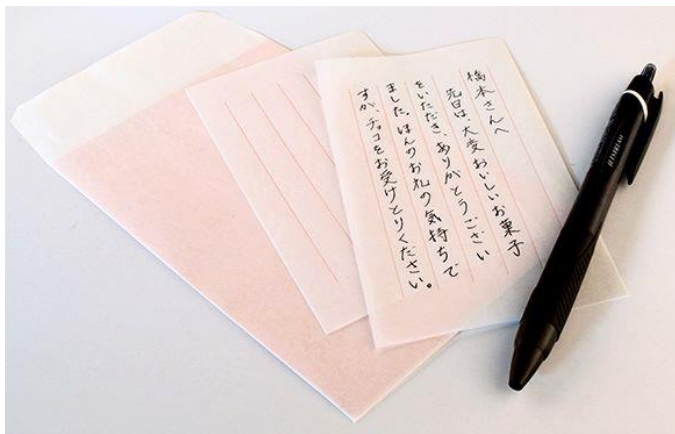 橋本さんへ
先日は、大変おいしいお菓子
をいただき、ありがとうござい
ました。ほんのお礼の気持ちで
すが、チョコをお受けとりください。
JETSTREAM